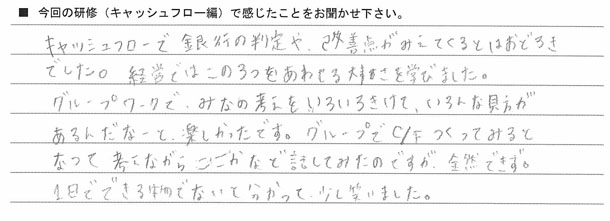 ■ 今回の研修（キャッシュフロー編）で感じたことをお聞かせ下さい。
キャッシュフローで銀行の判定や、改善点がみえてくるとはおどろき
でした。経営ではこの3つをあわせる大事さを学びました。
グループワークで、みなの考えをいろいろきけて、いろんな見方が
あるんだなーと、楽しかったです。グループでC/Fつくってみると
なって考えながらここかなと話してみたのですが、全然できず。
1日でできる物でないと分かって、少し笑いました。